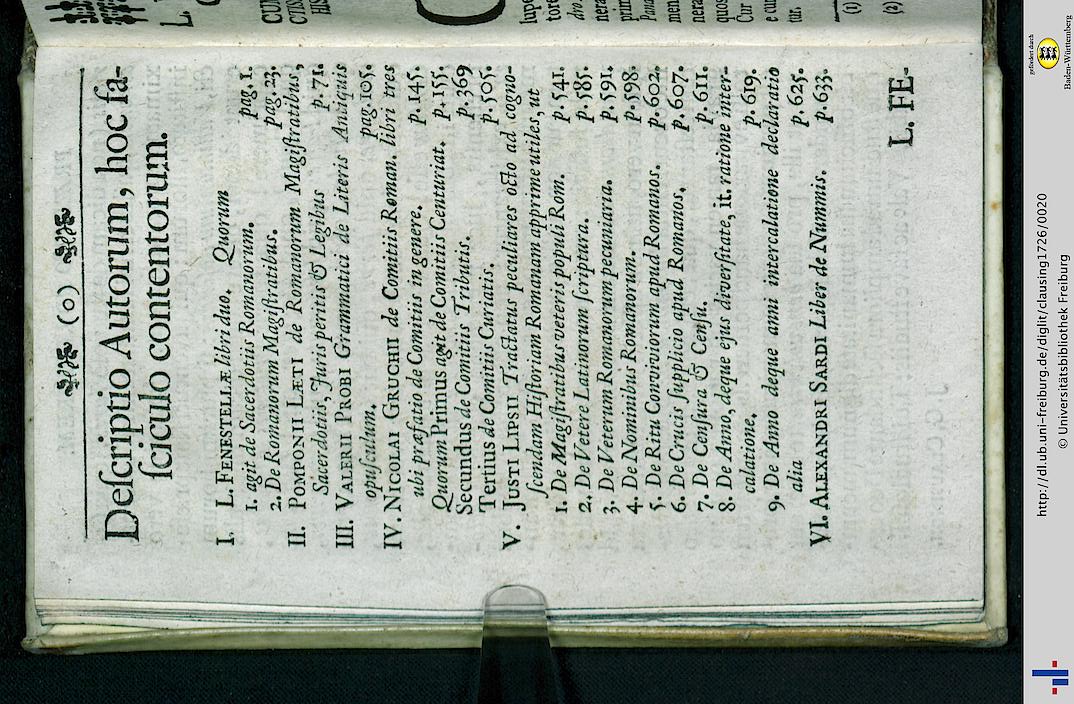 (o)
Deſcriptio Autorum, hoc fa-
ſciculo contentorum.
I. L. FENESTELLÆ libri duo. Quorum
1. agit de Sacerdotiis Romanorum. pag. 1.
2. De Romanorum Magiſtratibus. pag. 23.
II. POMPONII LÆTI de Romanorum Magiſtratibus,
Sacerdotiis, Jurisperitis & Legibus p. 71.
III. VALERII PROBI Grammatici de Literis Antiquis
opuſculum, pag. 105.
IV. NICOLAI GRUCHII de Comitiis Roman. libri tres
ubi præfatio de Comitiis in genere. p. 145.
Quorum Primus agit de Comitiis Centuriat. p. 155.
Secundus de Comitiis Tributis. p. 369
Terius de Comitiis Curiatis. p. 505.
V. JUSTI LIPSII Tractatus peculiares octo ad cogno-
ſcendam Hiſtoriam Romanam apprime utiles, ut
1. De Magiſtratibus veteris populi Rom. p. 541.
2. De Vetere Latinorum ſcriptura. p. 585.
3. De Veterum Romanorum pecuniaria. p. 591.
4. De Nominibus Romanorum. p. 598.
5. De Ritu Conviviorum apud Romanos. p. 602.
6. De Crucis ſupplicio apud Romanos. p. 607.
7. De Cenſura & Cenſu. p. 611.
8. De Anno, deque ejus diverſitate, it. ratione inter-
calatione. p. 619.
9. De Anno deque anni intercalatione declaratio
alia p. 625.
VI. ALEXANDRI SARDI Liber de Nummis. p. 633.
L. FE-
L.
CUM
HIS
lupe
tore
dro
nera
prim
Pana
men
nera
quos
Cur
e cun
tur.
(1)
(2)
http://dl.ub.uni-freiburg.de/diglit/clausing1726/0020
© Universitätsbibliothek Freiburg
gefördert durch
Baden-Württemberg